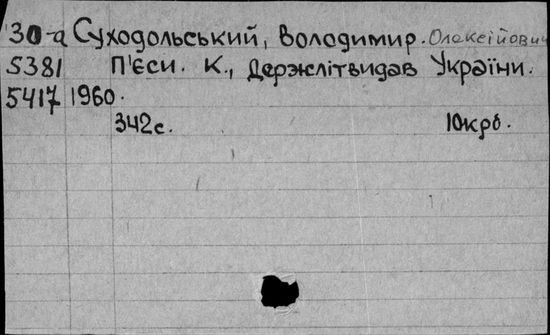 30-а Суходольський, Володимир. Олексійович
5381 П'єси. К., Держлітвидав України.
5417 1960.
342с. 10крб.